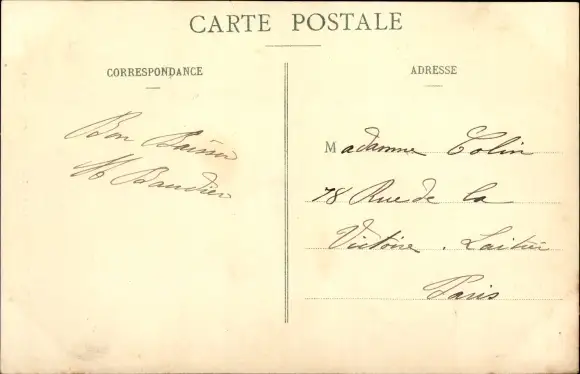 CARTE POSTALE
CORRESPONDANCE
ADRESSE
Bon Baiser
M Baudier
Madamme Colin
78 Rue de la
Victoire. Laitier
Paris